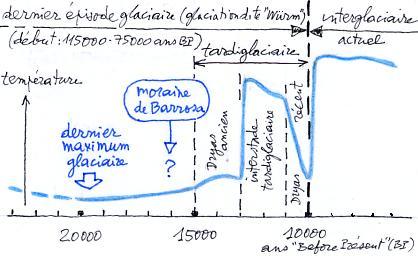 dernier épisode glaciaire (glaciation dite "Würm")
interglaciaire
actuel
(début: 115000-75000 ans BP)
tardiglaciaire
température
moraine
de Barrosa
?
dernier
maximum
glaciaire
Dryas
ancien
interstade
tardiglaciaire
Dryas récent
20000
15000
10000
ans "Before Présent" (BP)